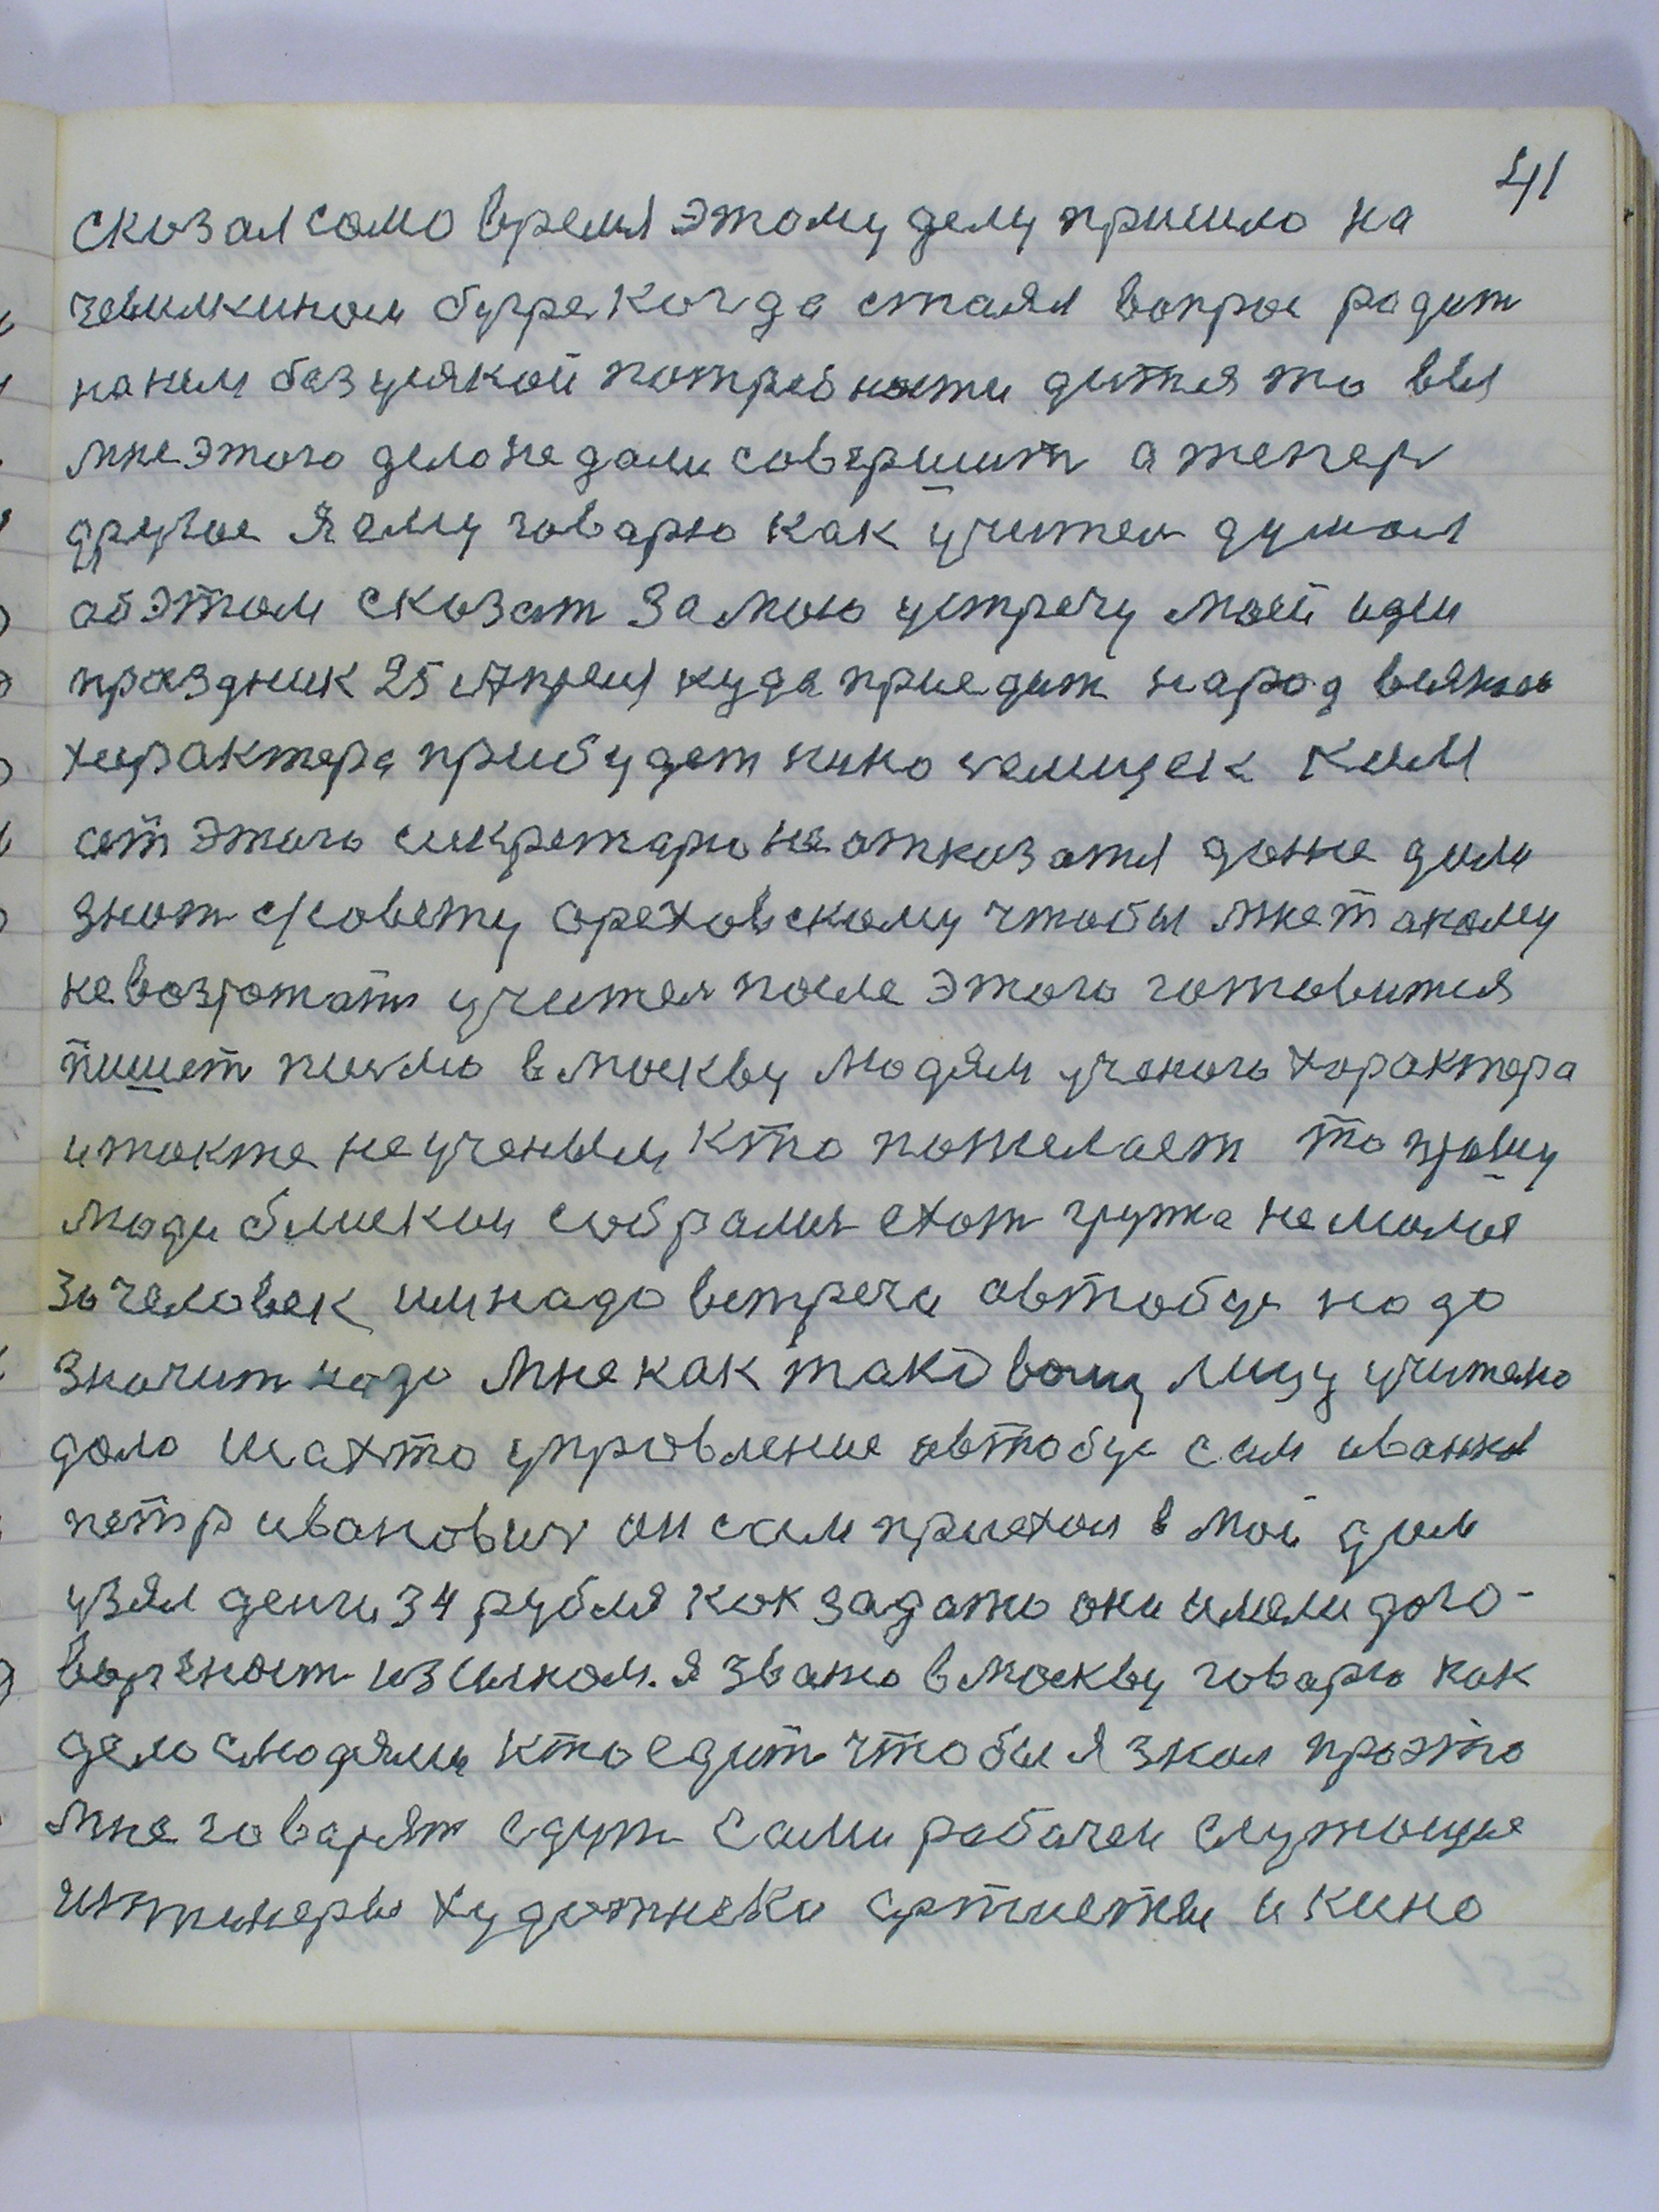 41
сказал само время этому делу пришло на
чевилкином бугре когда стаял вопрос радит
на нем без усякой потребности дитя то вы
мне этого дело не дали совершит а тепер
другое я ему говарю как учител думал
об этом сказат за мою устречу моей идеи
праздник 25 Апреля куда приедит народ всякого
характера прибудет кино Ким
от этого сикретарю не отказатся даже дали
знат с/совету ореховскому чтобы мне такому
не возрожат учител после этого готовится
пишет писмо в москву людям ученого характера
и также не ученым кто пожелает то прошу
люди близкии собралис ехат група не малая
30 человек им надо встреча автобус надо
значит надо мне как таковому лицу учителю
дало шахто управление автобус сам иванкл
петр иванович он сам приехал в мой дом
узял денги 34 рубля как за дато они имели дого-
вореност из ними. я званю в москву говарю как
дело с людями кто едит чтобы я знал про это
мне говарят едут сами рабочеи служющие
инжинеры художнеки артисты и кино